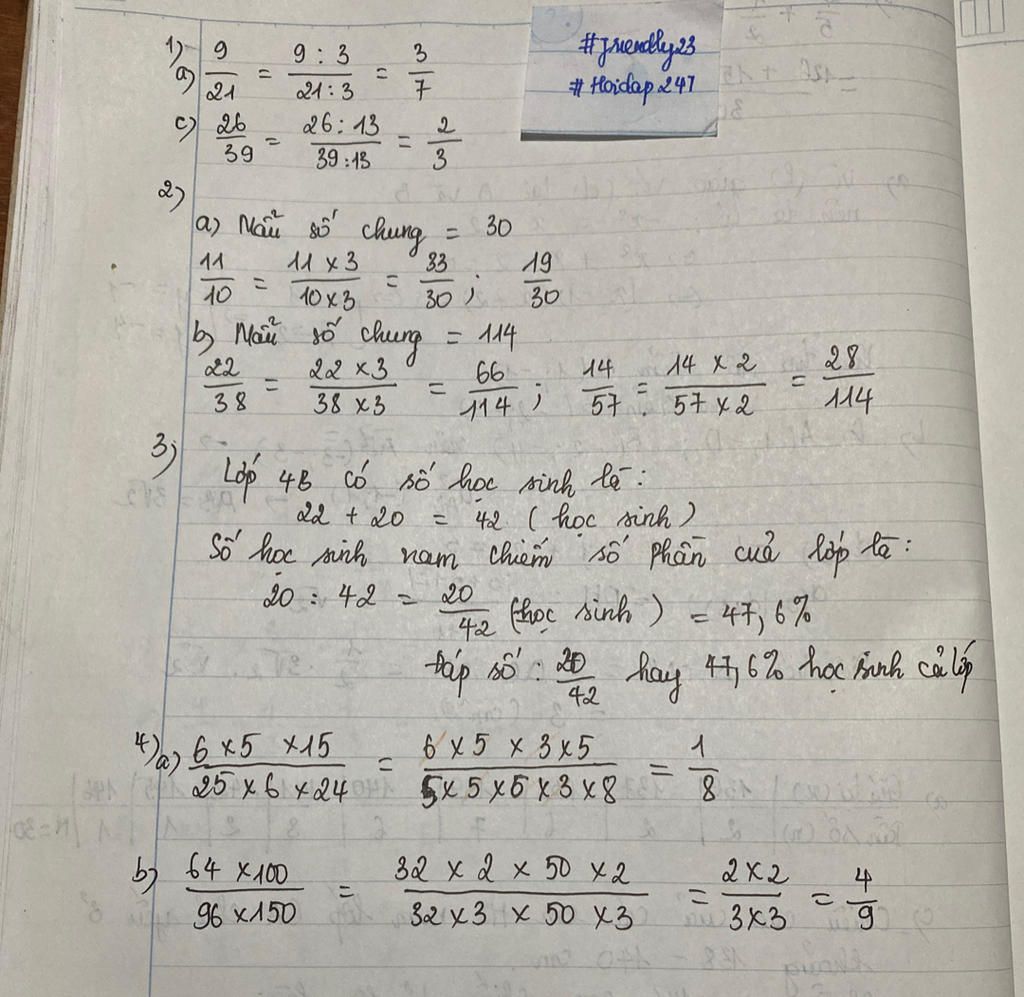 #Friendly23
#Hoidap247
1)
a) 9/21 = 9 : 3/21 : 3 = 3/7
c) 26/39 = 26 : 13/39 : 13 = 2/3
2)
a) Mẫu số chung = 30
11/10 = 11 x 3/10 x 3 = 33/30 ; 19/30
b) Mẫu số chung = 114
22/38 = 22 x 3/38 x 3 = 66/114 ; 14/57 = 14 x 2/57 x 2 = 28/114
3)
Lớp 4B có số học sinh là :
22 + 20 = 42 ( học sinh )
Số học sinh nam chiếm số phần của lớp là :
20 : 42 = 20/42 (học sinh ) = 47,6%
Đáp số : 20/42 hay 47,6% học sinh cả lớp
4) a) 6 x 5 x 15/25 x 6 x 24 = 6 x 5 x 3 x 5/5 x 5 x 6 x 3 x 8 = 1/8
b) 64 x 100/96 x 150 = 32 x 2 x 50 x 2/32 x 3 x 50 x 3 = 2 x 2/3 x 3 = 4/9